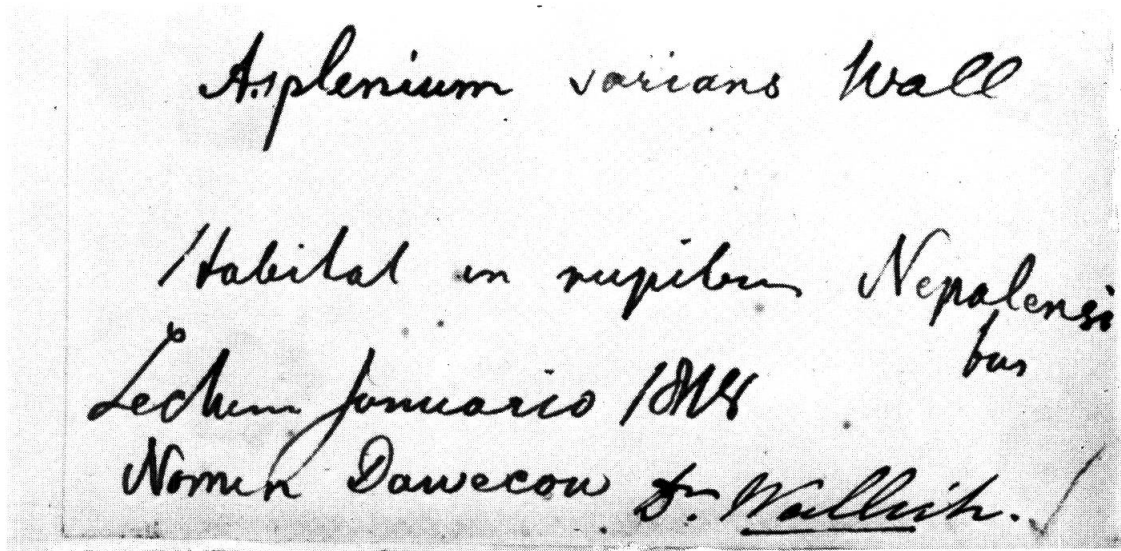 Asplenium varians Wall
Habitat in rupibus Nepalensi
bus
Lectum Januario 1818
Nomen
Dr. Wallich.